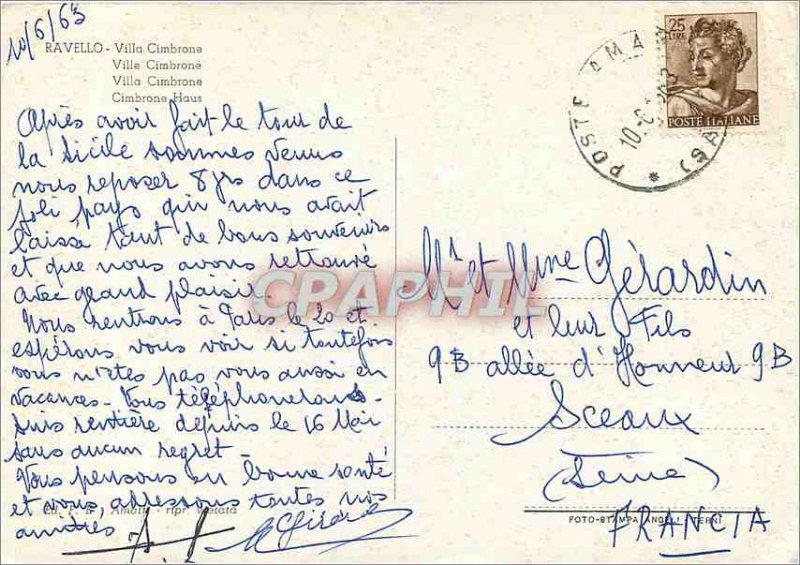 10/6/63
RAVELLO - Villa Cimbrone
Ville Cimbrone
Villa Cimbrone
Cimbrone Haus
Après avoir fait le tour de
la Sicile sommes venus
nous reposer 8 jrs dans ce
joli pays qui nous avait
laissé tant de bons souvenirs
et que nous avons retrouvé
avec grand plaisir.
Nous rentrons à Paris le 20 et
espérons vous voir si toutefois
vous n'êtes pas vous aussi en
vacances - Vous téléphonerons.
Suis rentière depuis le 16 Mai
sans aucun regret -
Vous pensons en bonne santé
et vous adressons toutes nos
amitiés
Amalfi - ripr. vietata
25
LIRE
POSTE ITALIANE
POSTE AMA
10-6
(SA)
CPARHIL
Mr et Mme Gérardin
et leur Fils
9B allée d'Honneur 9B
Sceaux
(Seine)
FRANCIA
FOTO-STAMPA ANGELI - TERNI